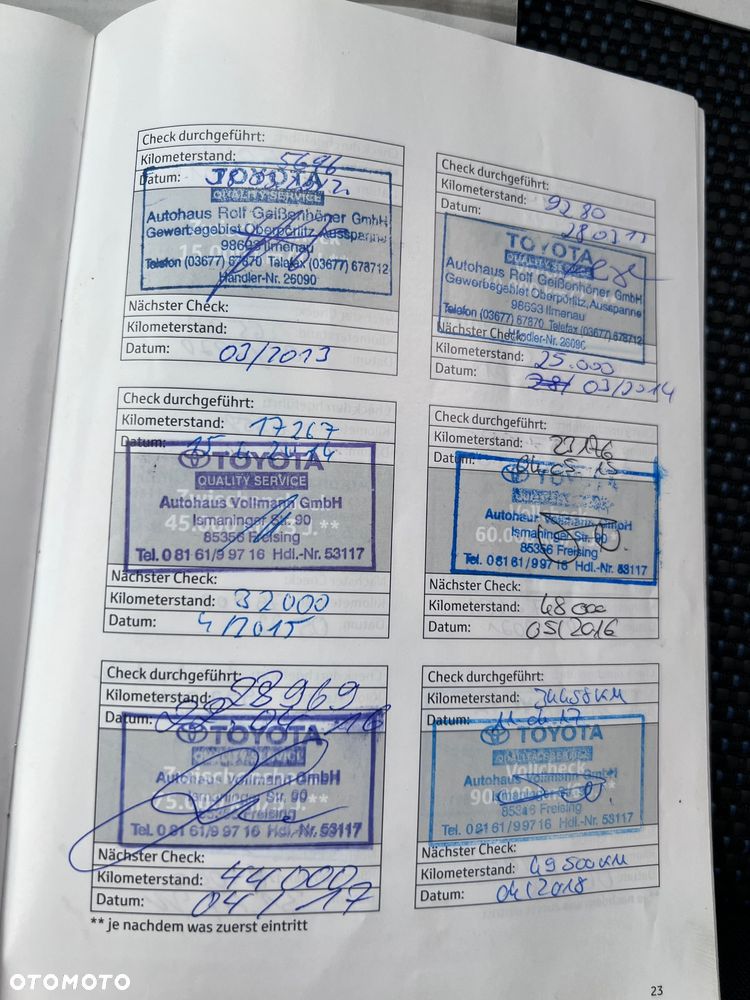 Check durchgeführt:
Kilometerstand: 5696
Datum:
TOYOTA
QUALITY SERVICE
Autohaus Rolf Geißenhöner GmbH
Gewerbegebiet Oberpörlitz, Ausspanne
98693 Ilmenau
Telefon (03677) 67870 Telefax (03677) 678712
Händler-Nr. 26090
Nächster Check:
Kilometerstand:
Datum: 03/2013
Check durchgeführt:
Kilometerstand: 9280
Datum:
TOYOTA
Autohaus Rolf Geißenhöner GmbH
Gewerbegebiet Oberpörlitz, Ausspanne
98693 Ilmenau
Telefon (03677) 67870 Telefax (03677) 678712
Händler-Nr. 26090
Nächster Check:
Kilometerstand: 25.000
Datum: 03/2014
Check durchgeführt:
Kilometerstand: 17267
Datum:
TOYOTA
QUALITY SERVICE
Autohaus Vollmann GmbH
Ismaninger Str. 90
85356 Freising
Tel. 0 81 61/9 97 16 Hdl.-Nr. 53117
Nächster Check:
Kilometerstand: 32000
Datum: 4/2015
Check durchgeführt:
Kilometerstand:
Datum: 04.05.15
TOYOTA
Autohaus Vollmann GmbH
Ismaninger Str. 90
85356 Freising
Tel. 0 81 61/9 97 16 Hdl.-Nr. 53117
Nächster Check:
Kilometerstand: 48000
Datum: 05/2016
Check durchgeführt:
Kilometerstand: 28969
Datum: 22.04.16
TOYOTA
Autohaus Vollmann GmbH
Ismaninger Str. 90
85356 Freising
Tel. 0 81 61/9 97 16 Hdl.-Nr. 53117
Nächster Check:
Kilometerstand: 44000
Datum: 04/17
Check durchgeführt:
Kilometerstand: 34458 KM
Datum:
TOYOTA
Vollcheck
Autohaus Vollmann GmbH
Ismaninger Str. 90
85356 Freising
Tel. 0 81 61/9 97 16 Hdl.-Nr. 53117
Nächster Check:
Kilometerstand: 49500 KM
Datum: 04/2018
** je nachdem was zuerst eintritt
23
OTOMOTO